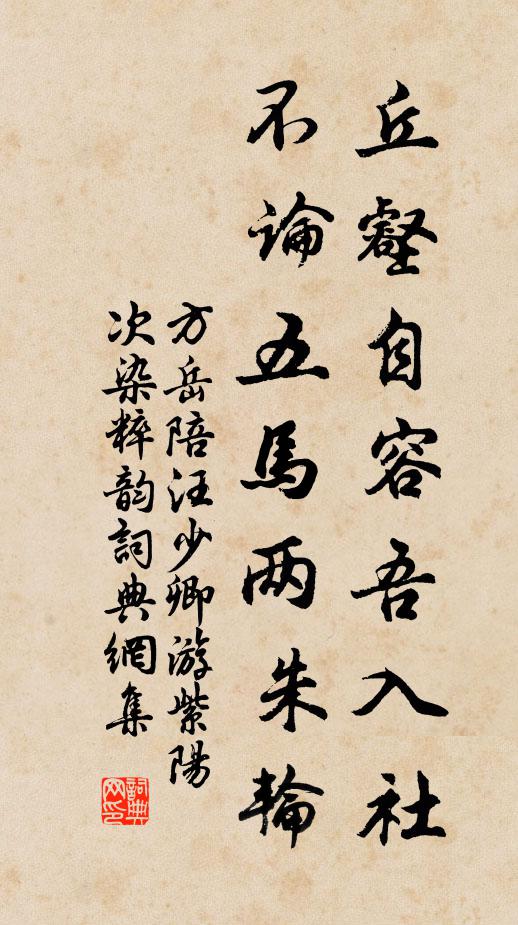 丘壑自容吾入社
不論五馬两朱輪
方岳陪汪少卿游紫陽
次染粹韵詞典網集
詞典网印